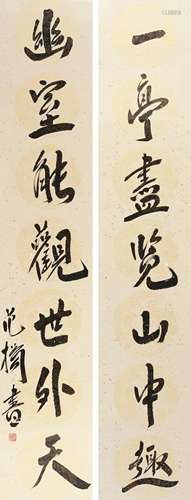 一亭盡覽山中趣
幽室能觀世外天
范楠書